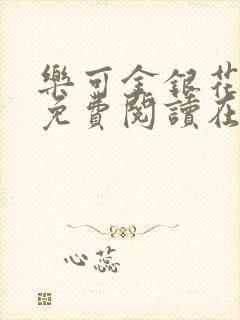 樂可金銀花
免費閱讀在
心蕊